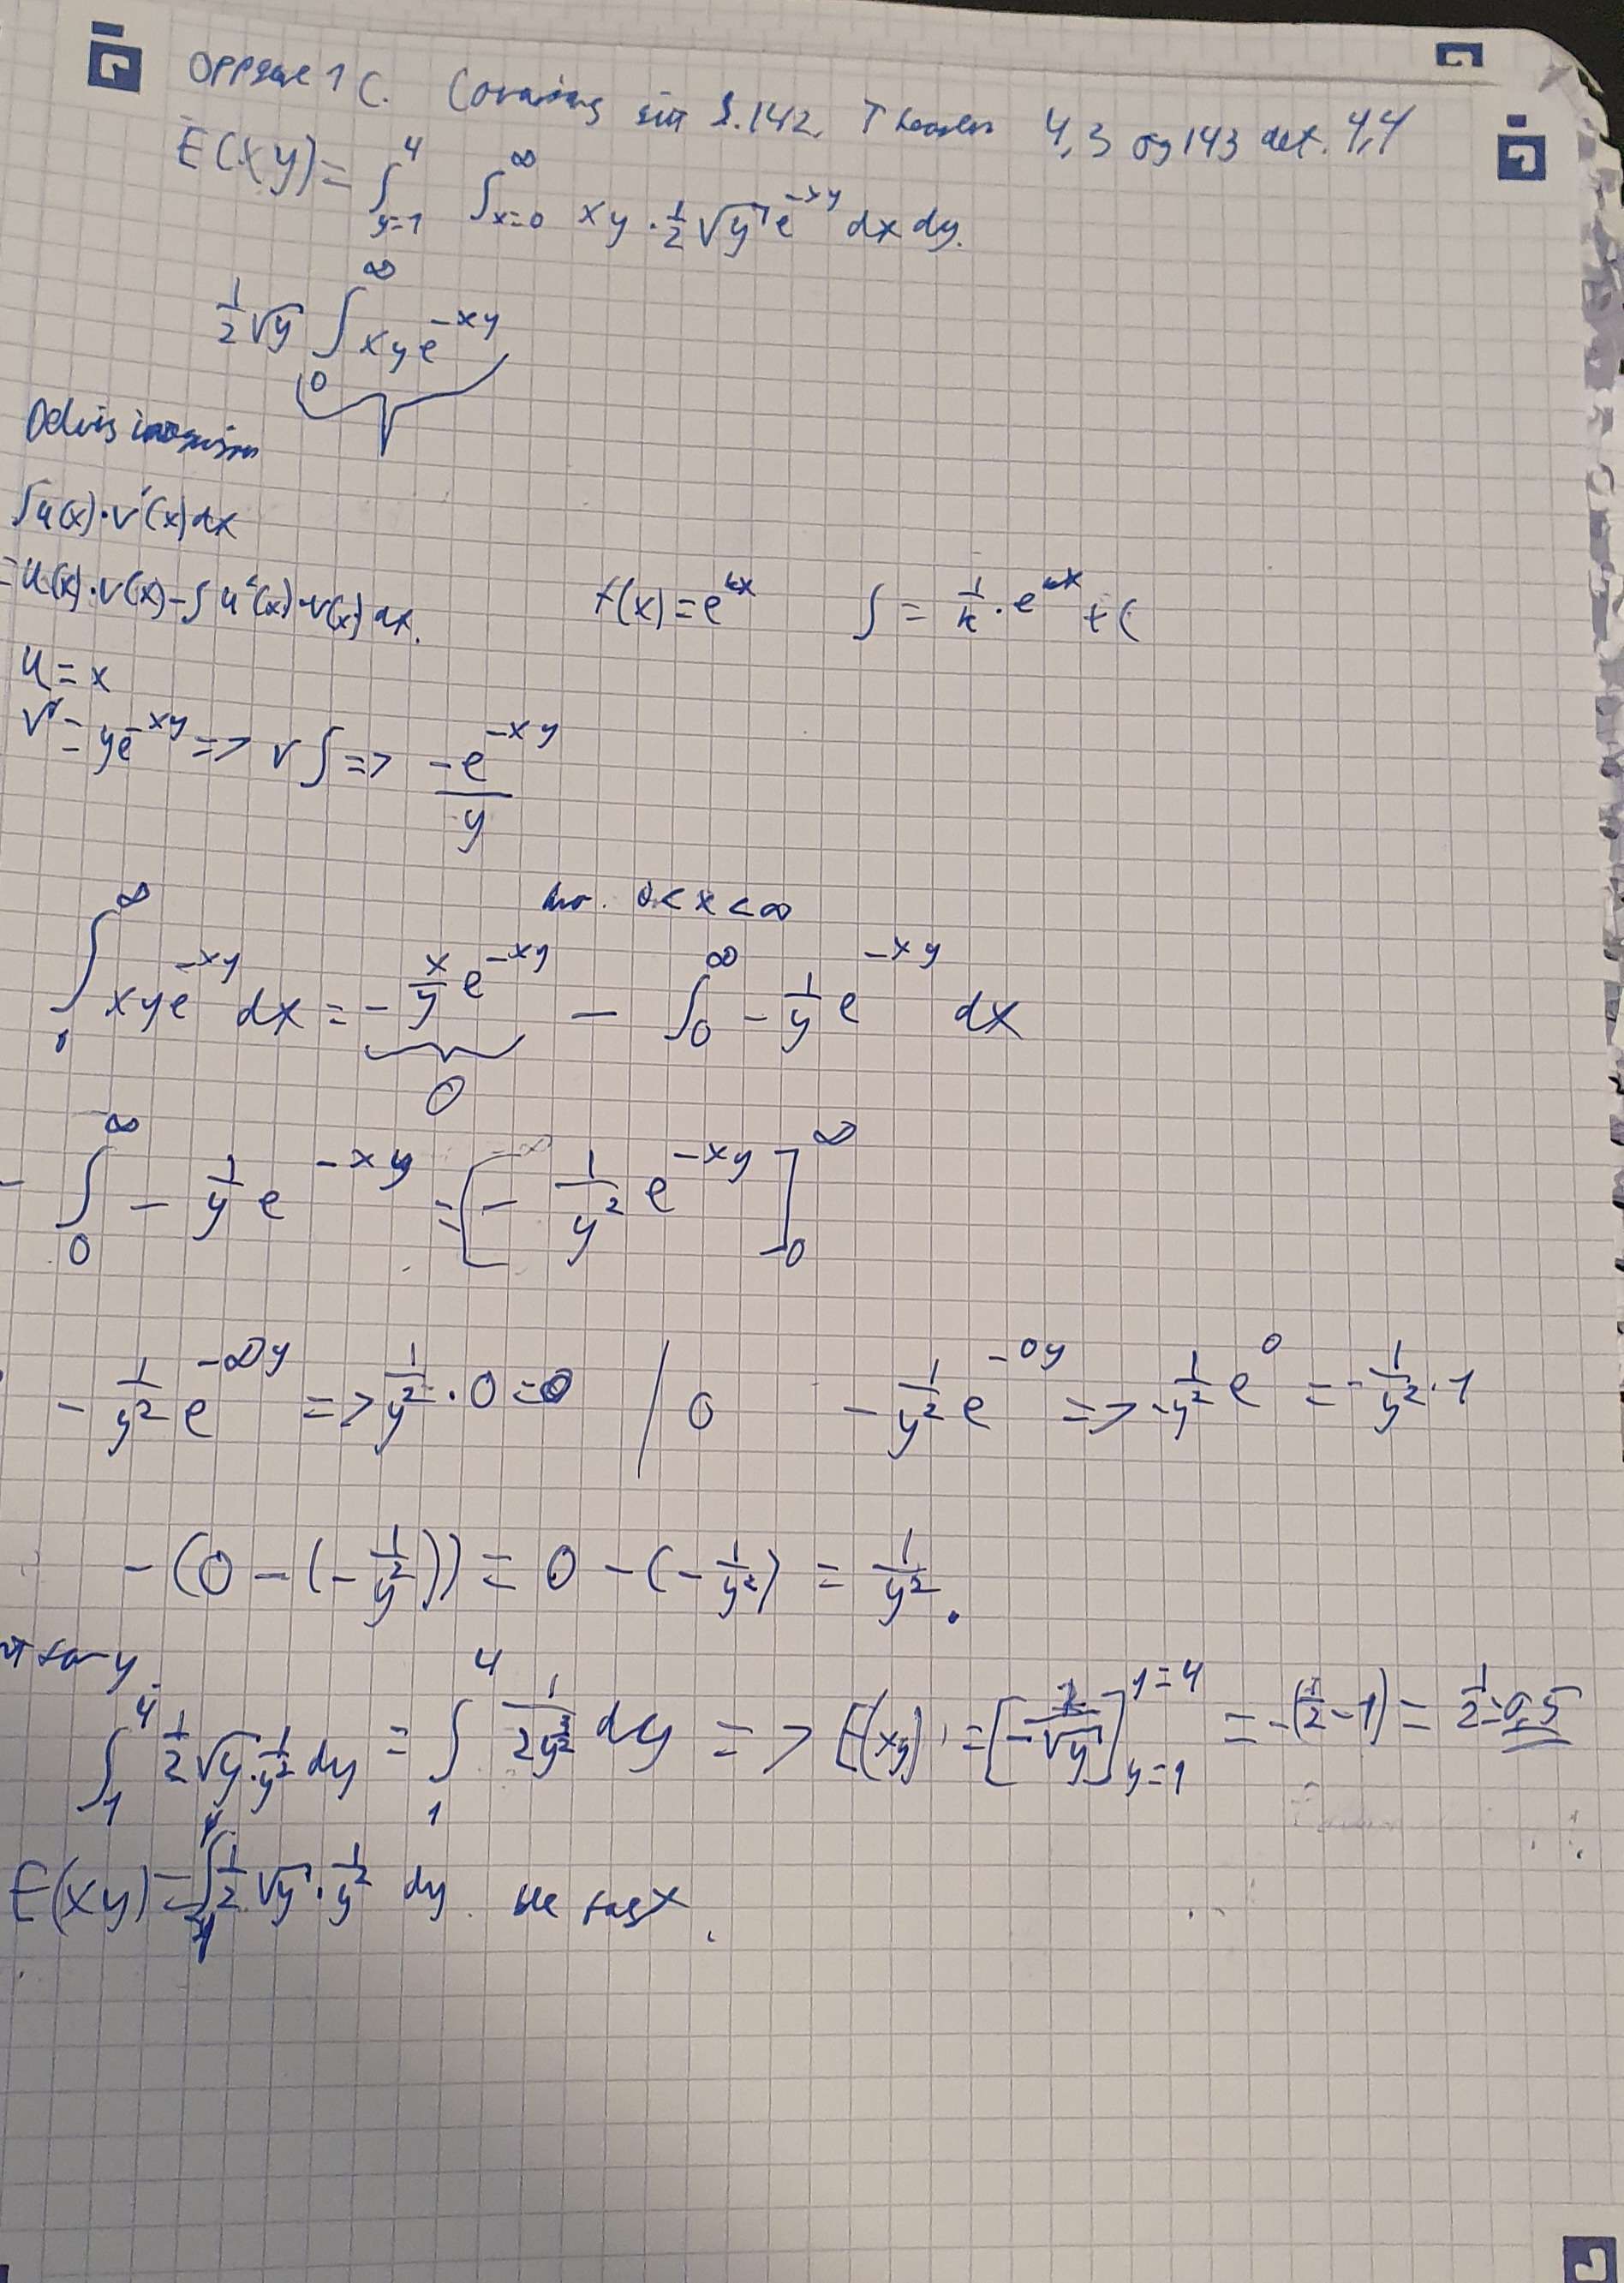 Oppgave 1 C. Covarians side S.142, Theorem 4,3 og 143 det. 4,4
E(XY) = ∫_{y=1}^{4} ∫_{x=0}^{∞} xy · 1/2 √y e^{-xy} dx dy.
1/2 √y ∫_0^∞ xy e^{-xy}
Delvis
∫u(x)·v'(x) dx
= u(x)·v(x) - ∫u'(x)·v(x) dx. f(x) = e^{kx} ∫ = 1/k · e^{kx} + C
u = x
v' = ye^{-xy} => v ∫ => -e^{-xy}/y
0 < x < ∞
∫_0^∞ xye^{-xy} dx = - x/y e^{-xy} - ∫_0^∞ - 1/y e^{-xy} dx
0
- ∫_0^∞ - 1/y e^{-xy} = [- 1/y² e^{-xy}]_0^∞
- 1/y² e^{-∞y} => 1/y² · 0 = 0 / 0 - 1/y² e^{-0y} => - 1/y² e^0 = - 1/y² · 1
- (0 - (- 1/y²)) = 0 - (- 1/y²) = 1/y².
y
∫_1^4 1/2 √y · 1/y² dy = ∫_1^4 1/(2y^{3/2}) dy => E(xy) = [- 1/√y]_{y=1}^{1=4} = -(1/2 - 1) = 1/2 = 0,5
E(XY) = ∫_1^4 1/2 √y · 1/y² dy.